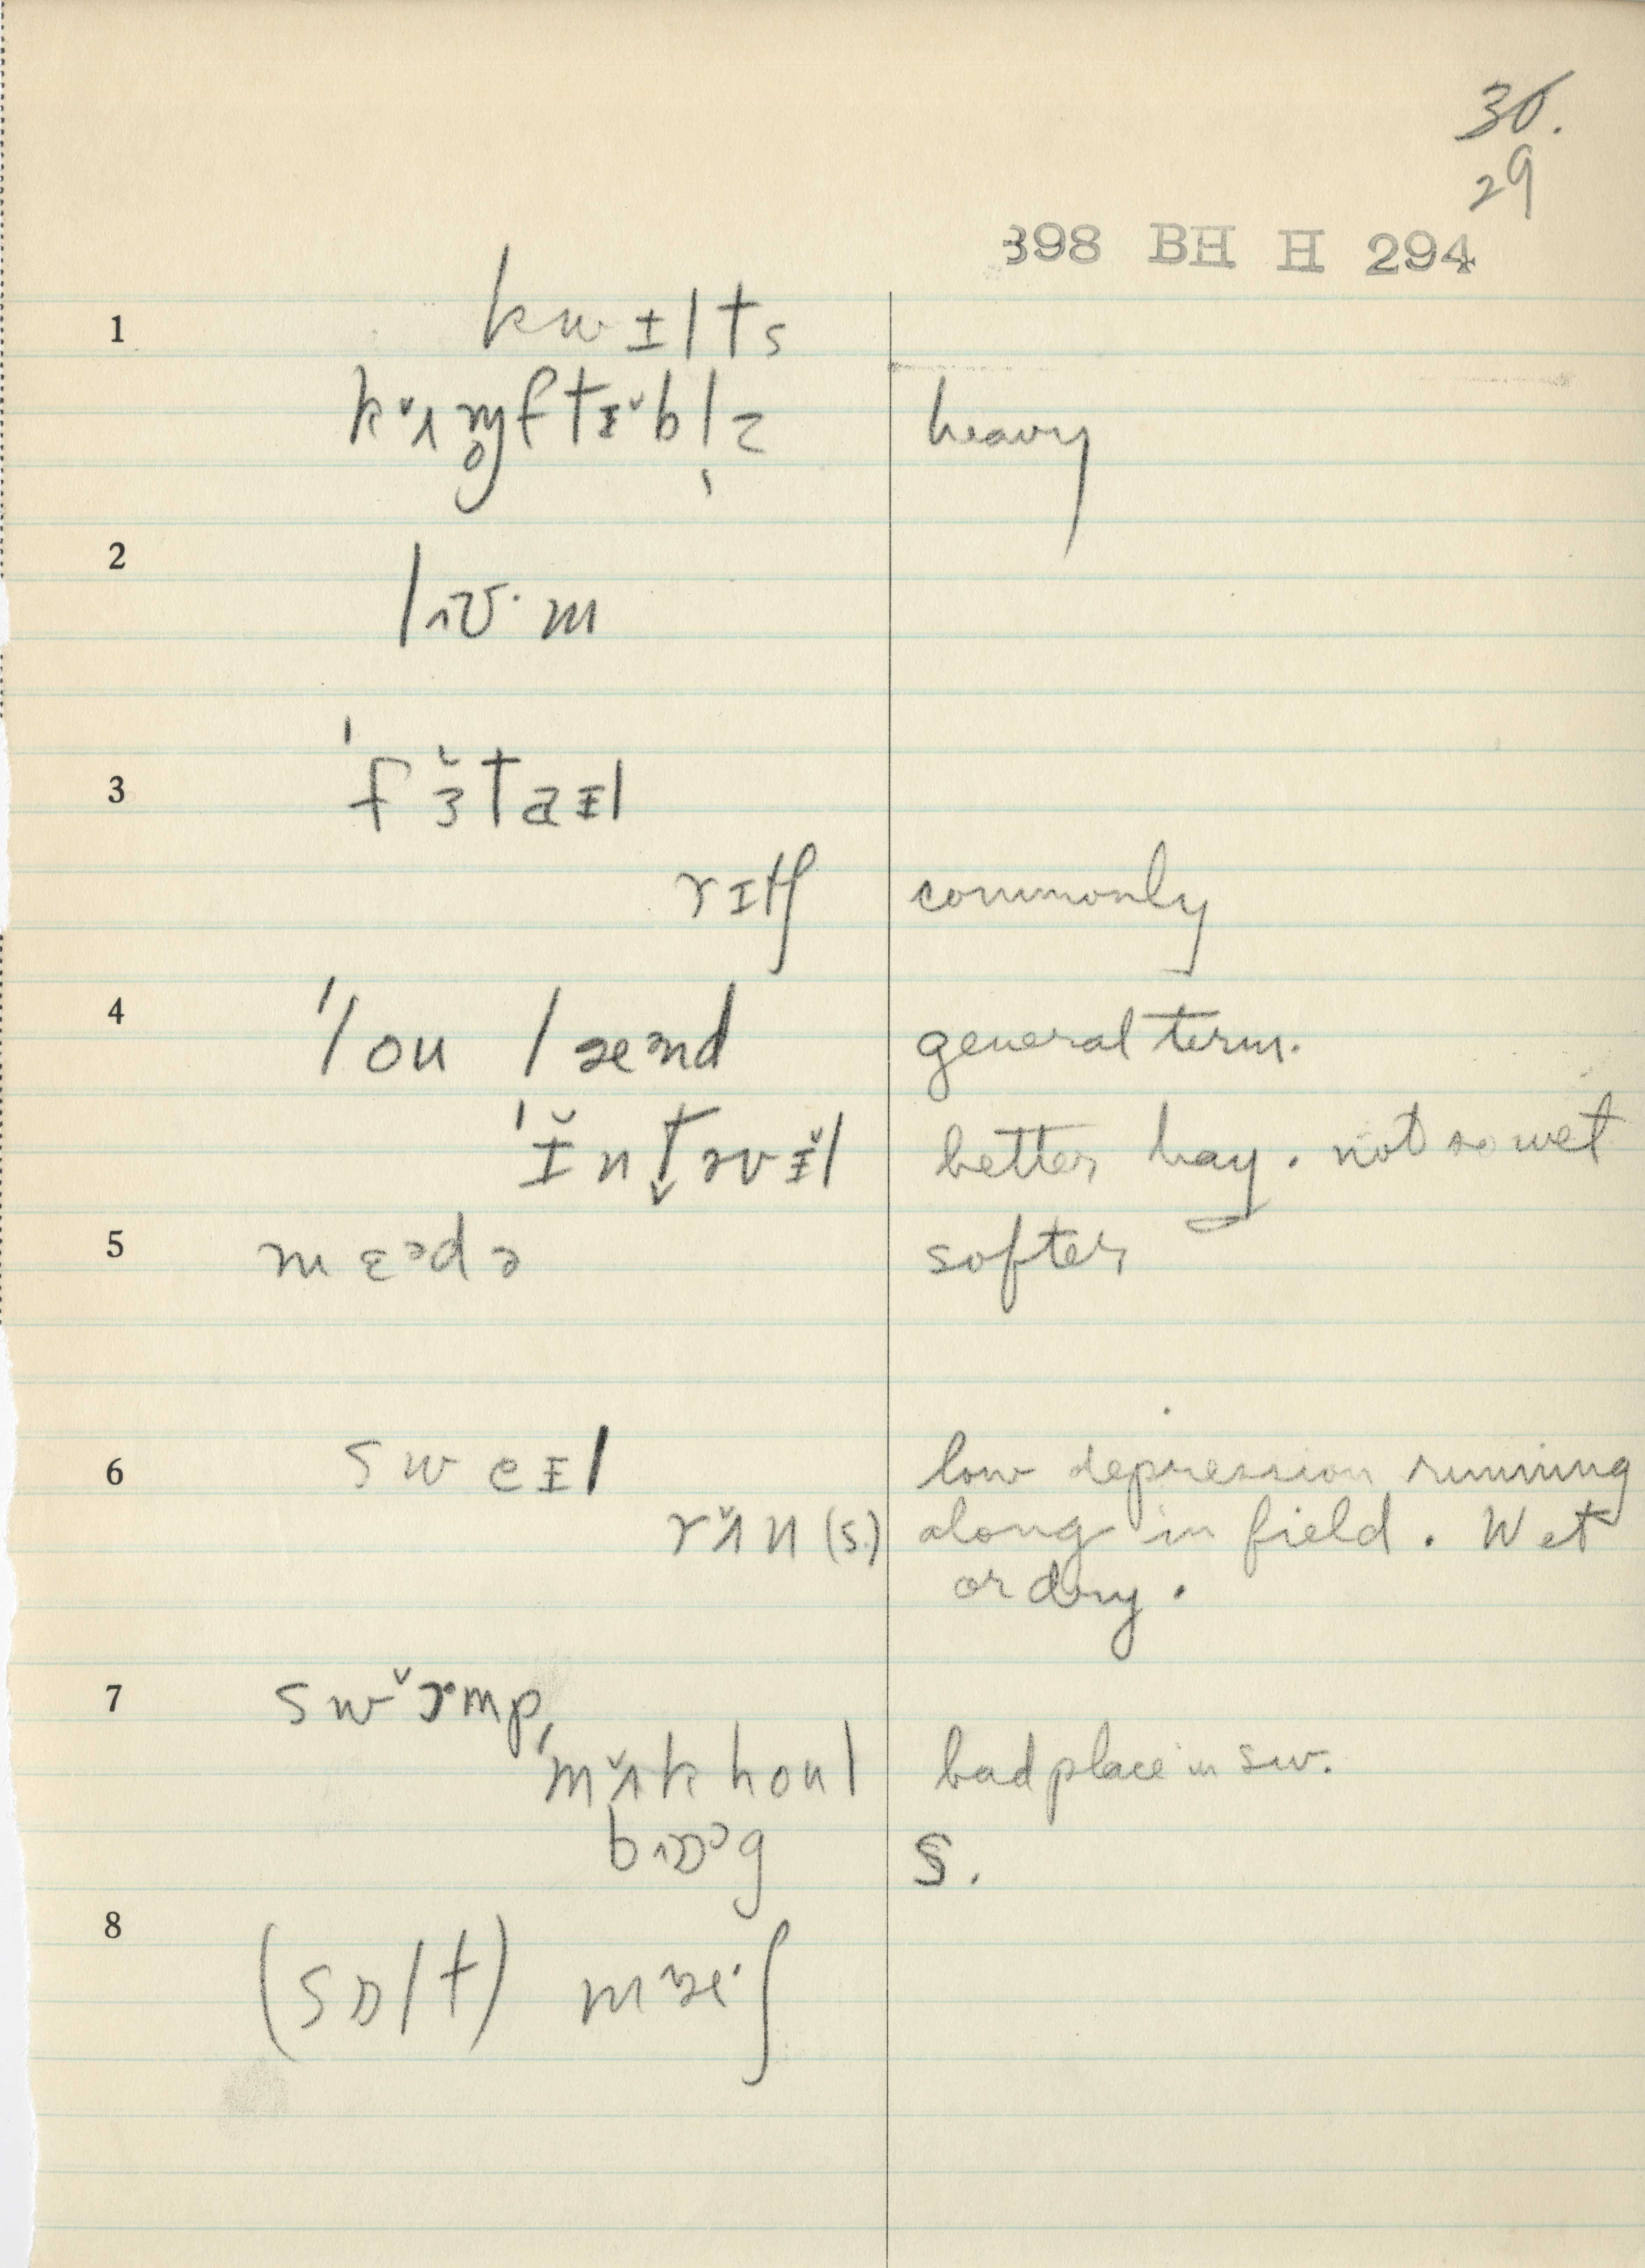 30.
29
398 BH H 294
1 kwɪlts
kˇʌɱ̥ftɪˇbl̩z heavy
2 lɒ·m
3 ˈfɜ̆taɪl
rɪtʃ commonly
4 ˈlou lænd general term.
ˈɪ̆nt̬əvɪ̆l better hay. not so wet
5 mɛᵊdə softer
6 sweɪl low depression running
rʌ̆n(s) along in field. Wet
or dry.
7 swˇɒmp,
ˈmʌ̆k houl bad place in sw.
bɒᵊg S.
8 (sɒlt) mæ·ʃ